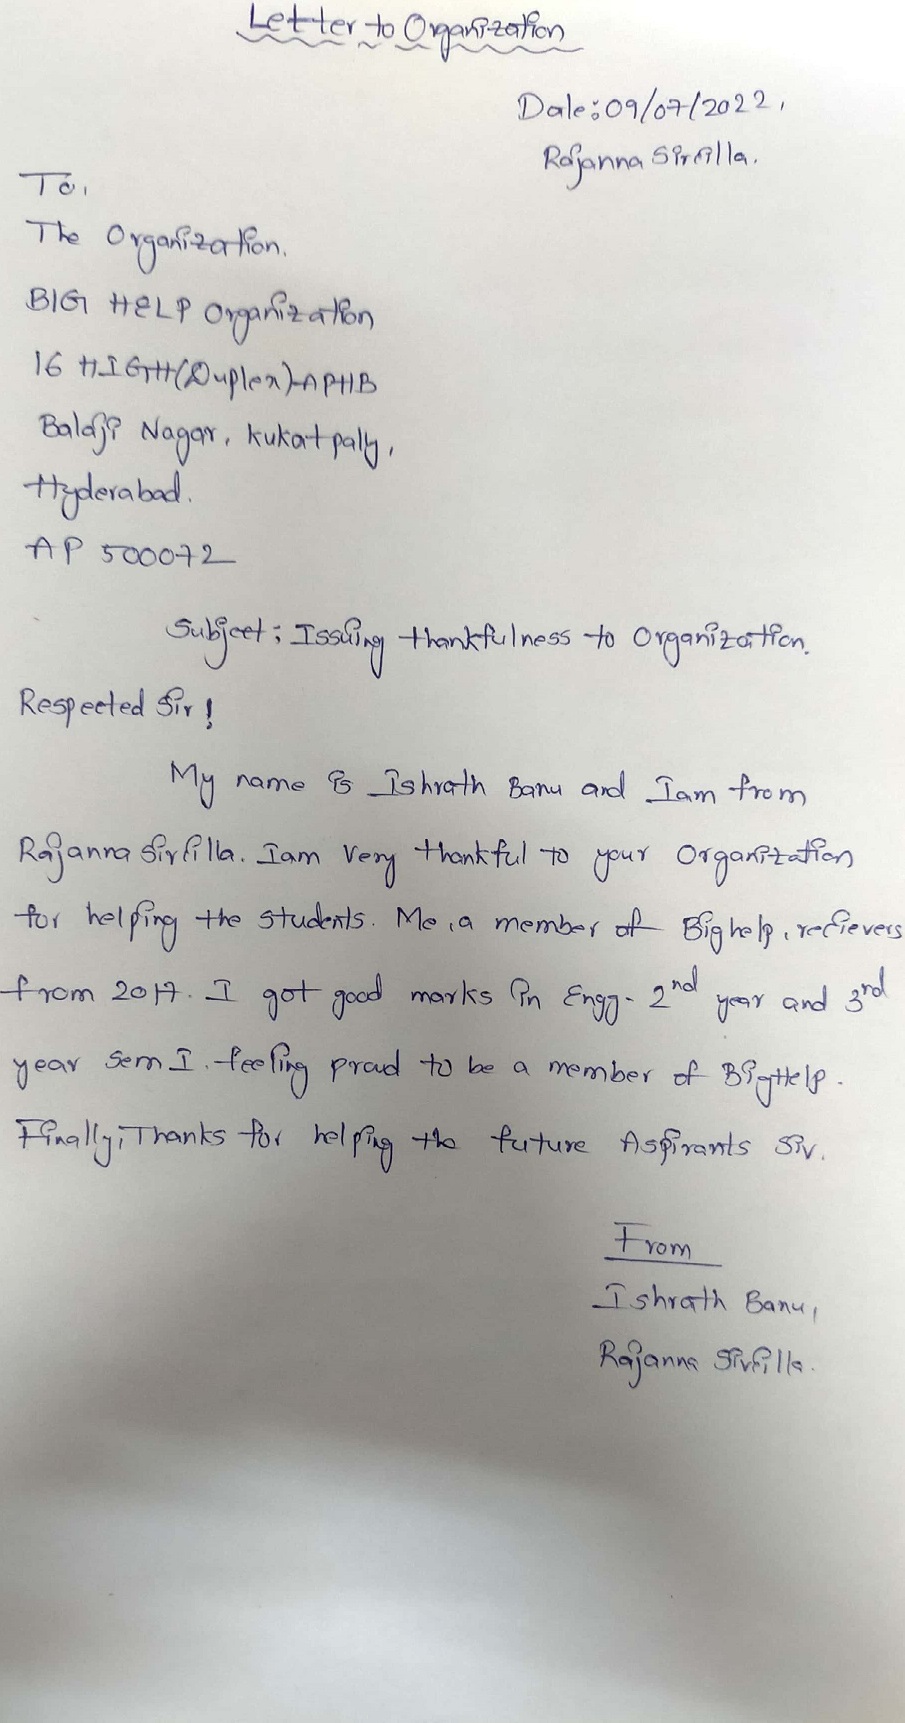 Letter to Organization
Date: 09/07/2022,
Rajanna Sircilla.
To,
The Organization.
BIG HELP Organization
16 HIGH(Duplex)-APHB
Balaji Nagar, Kukatpally,
Hyderabad.
AP 500072
Subject: Issuing thankfulness to Organization.
Respected Sir!
My name is Ishrath Banu and Iam from
Rajanna Sircilla. Iam very thankful to your Organization
for helping the students. Me, a member of Bighelp, recievers
from 2017. I got good marks in Engg- 2nd year and 3rd
year sem I. feeling proud to be a member of BigHelp.
Finally, Thanks for helping the future Aspirants Sir.
From
Ishrath Banu,
Rajanna Sircilla.